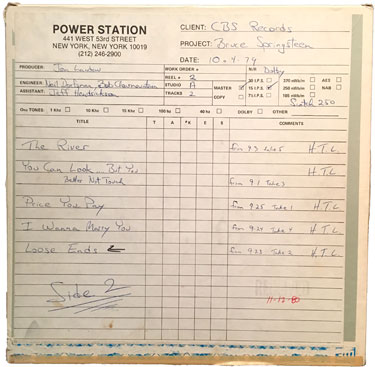 POWER STATION
441 WEST 53rd STREET
NEW YORK, NEW YORK 10019
(212) 246-2900
CLIENT: CBS Records
PROJECT: Bruce Springsteen
DATE: 10.4.79
PRODUCER: Jon Landau
WORK ORDER #
REEL # 2
ENGINEER: Neil Dorfsman, Bob Clearmountain
STUDIO A
ASSISTANT: Jeff Hendrickson
TRACKS 2
MASTER
COPY
30 I.P.S.
15 I.P.S.
7½ I.P.S.
N/R Dolby
370 nWb/m
250 nWb/m
185 nWb/m
AES
NAB
Scotch 250
Osc TONES: 1 Khz 10 Khz 15 Khz 100 hz 40 hz DOLBY OTHER
TITLE T A K E COMMENTS
The River from H.T.C.
You Can Look But You H.T.C.
Better Not Touch from 9.1 Take 3
Price You Pay from 9.25 Take 1 H.T.C.
I Wanna Marry You from 9.24 Take 4 H.T.C.
Loose Ends ← from Take 2 H.T.C.
Side 2
11-12-80